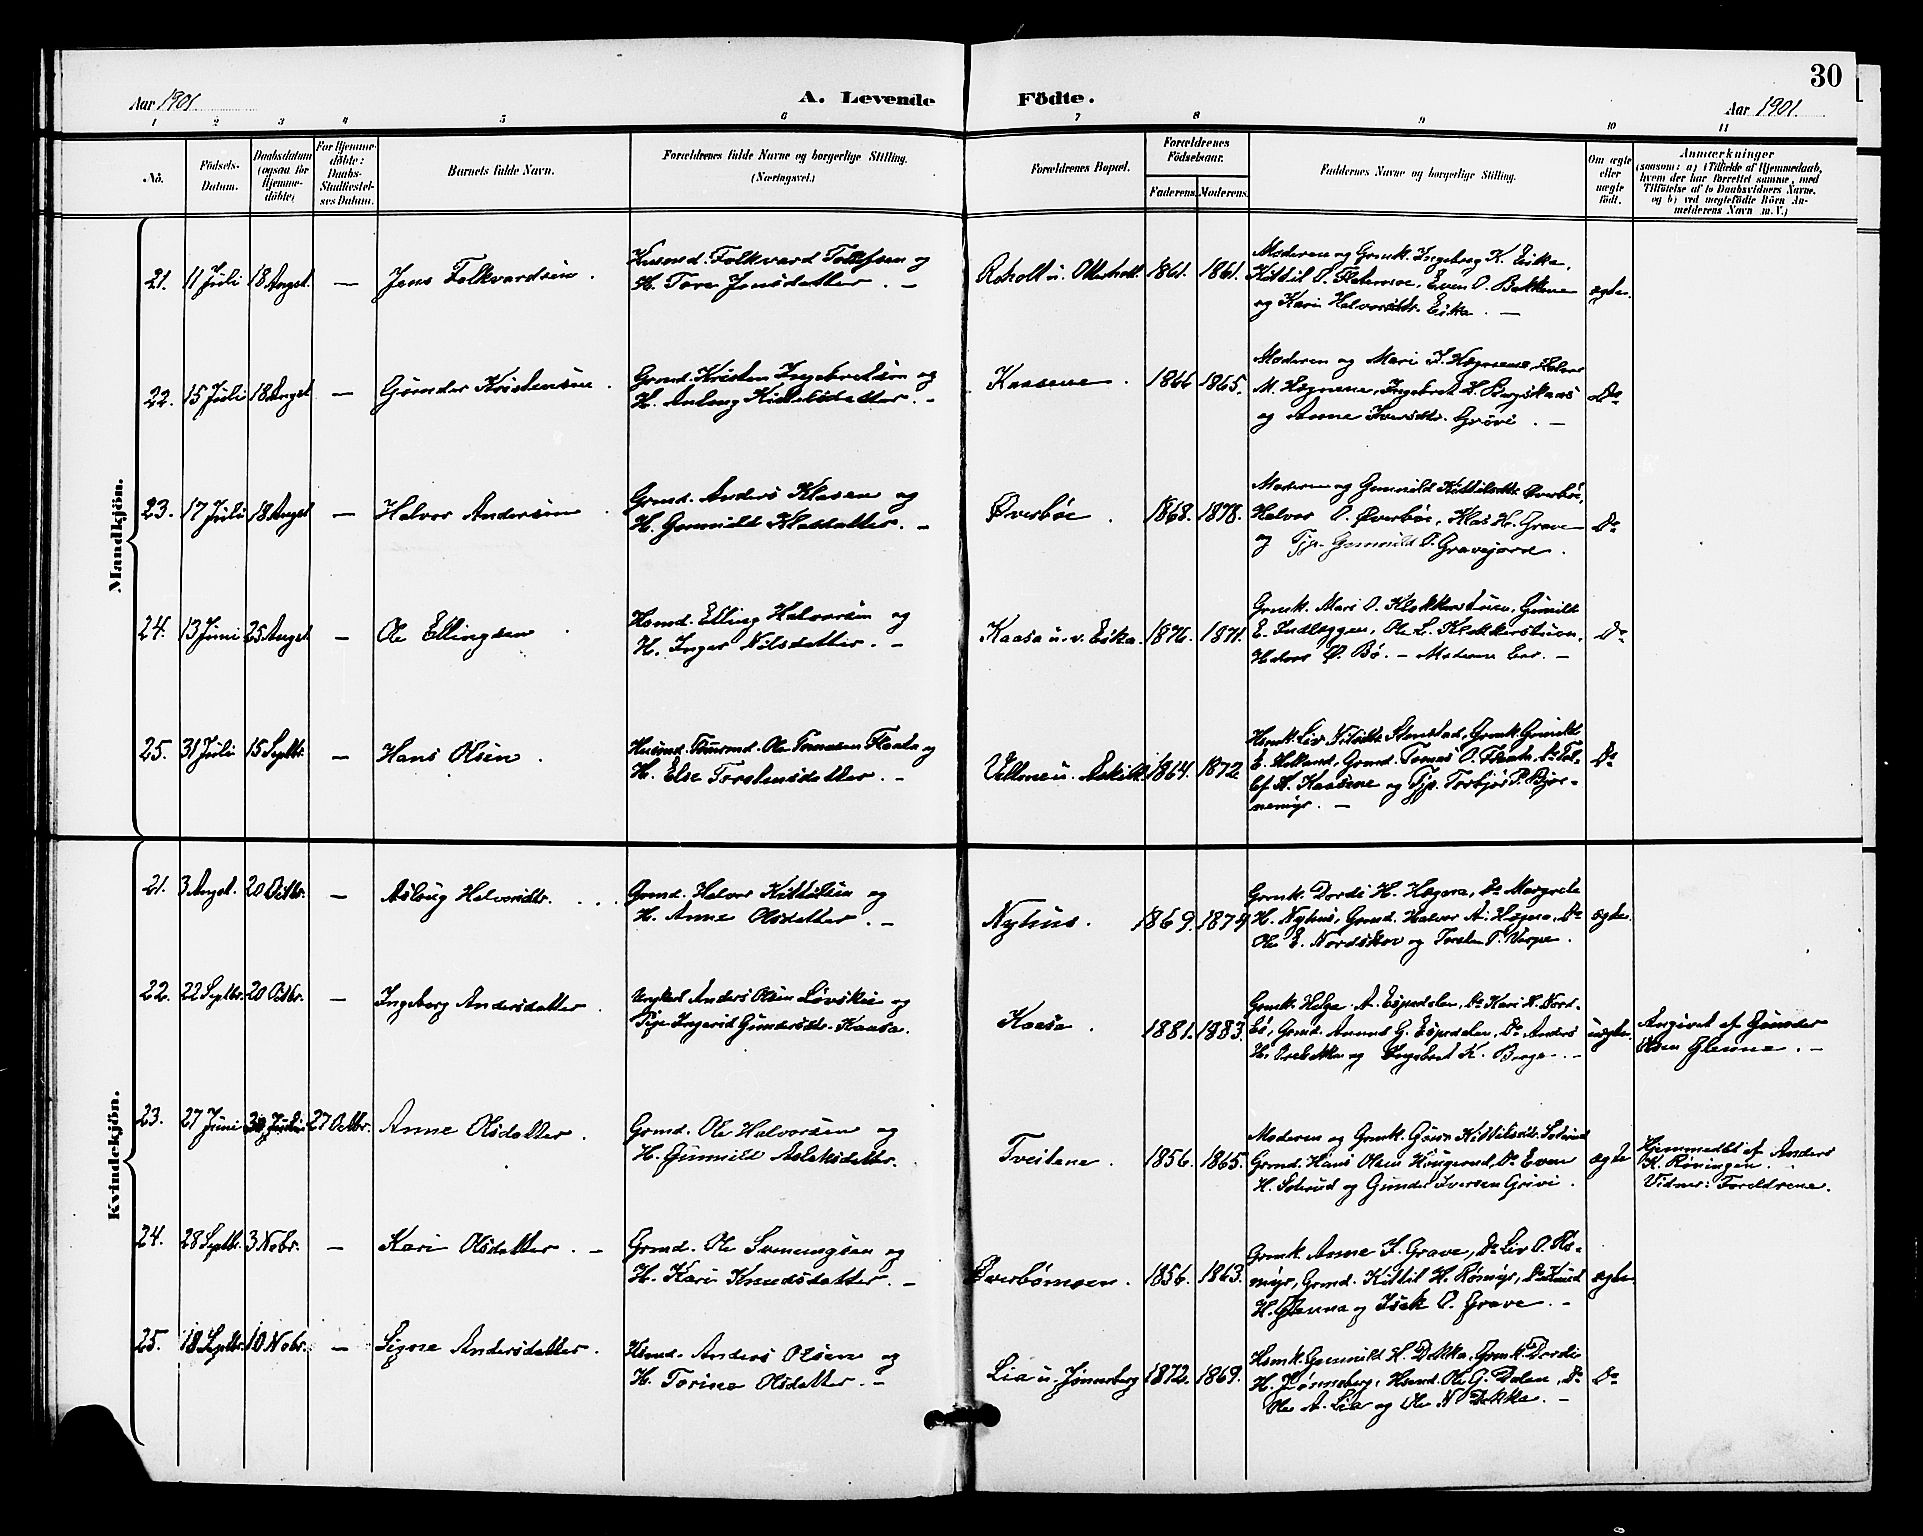 30
Aar 1901. A. Levende Födte. Aar 1901.
1 2 3 4 5 6 7 8 9 10 11
No. Födsels-Datum. Daabsdatum (ogsaa for Hjemmedöbte) For Hjemmedöbte: Daabs-Stadfæstelses Datum. Barnets fulde Navn. Forældrenes fulde Navne og borgerlige Stilling. (Næringsvei.) Forældrenes Bopæl. Forældrenes Födselsaar. Faderens. Moderens. Faddernes Navne og borgerlige Stilling. Om ægte eller uægte födt. Anmærkninger
(saasom: a) i Tilfælde af Hjemmedaab,
hvem der har forrettet samme, med
Tilföielse af to Daabsvidners Navne,
og b) ved uægtefödte Börn An-
melderens Navn m.V.)
Mandkjön.
21. 11 Juli 18 Augst — Jens Folkvardsen.
Husmd. Folkvard Tollefsen og
H. Tore Jensdatter. —
Roholt u. Olleholt 1861. 1861.
Moderen og Grmk. Ingebrg K. Eika,
Kittil O. Flatemoe, Even O. Bakkene
og Kari Halvorsdtr. Eika. —
ægte.
22. 15 Juli 18 Augst — Gunder Kristensen.
Grmd. Kristen Ingebretsen og
H. Anlaug Kittilsdatter. —
Kaasene. 1866 1865.
Moderen og Mari J. Høgnene, Halvor
M. Høgnene, Ingebret H. Bergskaas
og Anne Iversdtr. Grövi. —
Do
23. 17 Juli 18 Augst — Halvor Andersen.
Grmd. Anders Klasen og
H. Gunnild Olsdatter. —
Øverböe. 1868. 1878.
Moderen og Gunnild Kittilsdtr. Øverböe,
Halvor O. Øverböe, Klas H. Grave
og Tjp. Gunnild O. Gravejorde.
Do
24. 13 Juni 25 Augst — Ole Ellingsen.
Husmd. Elling Halvorsen og
H. Inger Nilsdatter. —
Kaasa u. v. Eika. 1876. 1871.
Grmk. Mari O. Klokkerstuen, Gunild
E. Indlæggen, Ole L. Klokkerstuen,
Halvor O. Bö. — Moderen bar. —
Do
25. 31 Juli 15 Septbr. — Hans Olsen.
Husmd. Ole Tomasen Flaata og
H. Else Torstensdatter. —
1864. 1872
Hsmk. Liv Stenstad, Grmk. Gunild
E. Holland, Grmd. Tomas O. Flaata, Do Tol-
lef A. Kaasene og Tjp. Torbjör P. Björ-
nemyr. —
Do
Kvindekjön.
21. 3 Augst. 20 Octbr. — Aslaug Halvorsdtr.
Grmd. Halvor Kittilsen og
H. Anne Olsdatter. —
Nyhus. 1869. 1874
Grmk. Dordi H. Høgna, Do Margrete
H. Nyhus, Grmd. Halvor A. Høgna, Do
Ole E. Nordskov og Torsten P. Verpe.
ægte.
22. 22 Septbr. 20 Octbr. — Ingeborg Andersdatter.
Ungkarl Anders Olsen Løvskin og
Pige Ingerid Gundersdtr. Kaasa.
Kaasa. 1881. 1883.
Grmk. Helge A. Espedalen, Do Kari H. Nord-
bö, Grmd. Amund G. Espedalen, Do Anders
H. og Ingebret K. Berge. —
uægte.
Angivet af Gunder
Olsen Glenne. —
23. 27 Juni 30 Juni 27 Octbr. Anne Olsdatter.
Grmd. Ole Halvorsen og
H. Gunnild Aslaksdatter.
Tveitene. 1856. 1865.
Moderen og Grmk. Gunr Kittilsdtr. Solerud
Grmd. Hans Olsen Hougerud, Do Even
H. Solerud og Gunder Iversen Grivi.
ægte
Hjemmedbt af Anders
K. Röningen.
Vidner: Foreldrene.
24. 28 Septbr. 3 Nobr. — Kari Olsdatter. —
Grmd. Ole Svenungsen og
H. Kari Knudsdatter. —
Øverbömoen. 1856. 1863.
Grmk. Anne J. Grave, Do Liv O. Rö-
myr, Grmd. Kittil H. Römyr, Do Knud
H. Glenna og Isak O. Grave. —
ægte
25. 18 Septbr. 10 Nobr. — Signe Andersdatter.
Husmd. Anders Olsen og
H. Torine Olsdatter. —
Lia u. Jönneberg 1872. 1869.
Hsmk. Gunnild H. Dekka, Grmk. Dordi
H. Jönneberg, Husmd. Ole G. Dalen, Do
Ole A. Lia og Ole N. Dekka. —
Do